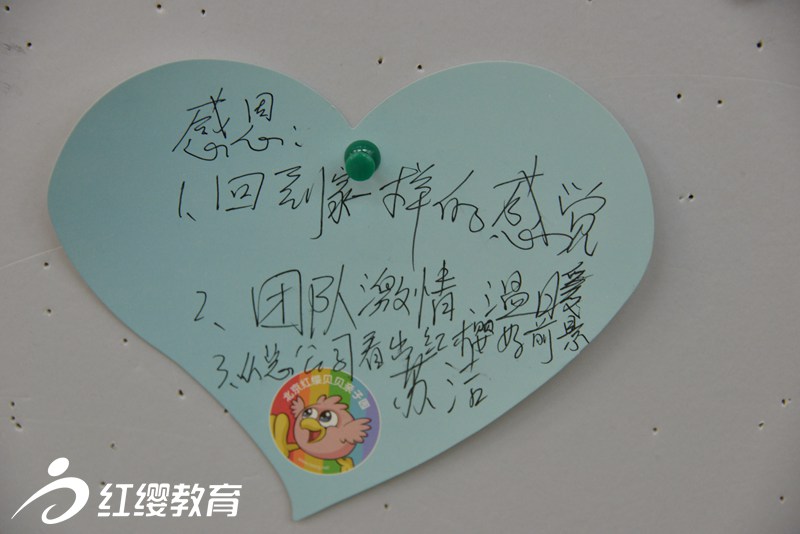 感恩:
1、回到家一样的感觉
2、团队激情、温暖
3、从总公司看出红樱好前景
苏洁
北京红缨贝贝亲子园
红缨教育